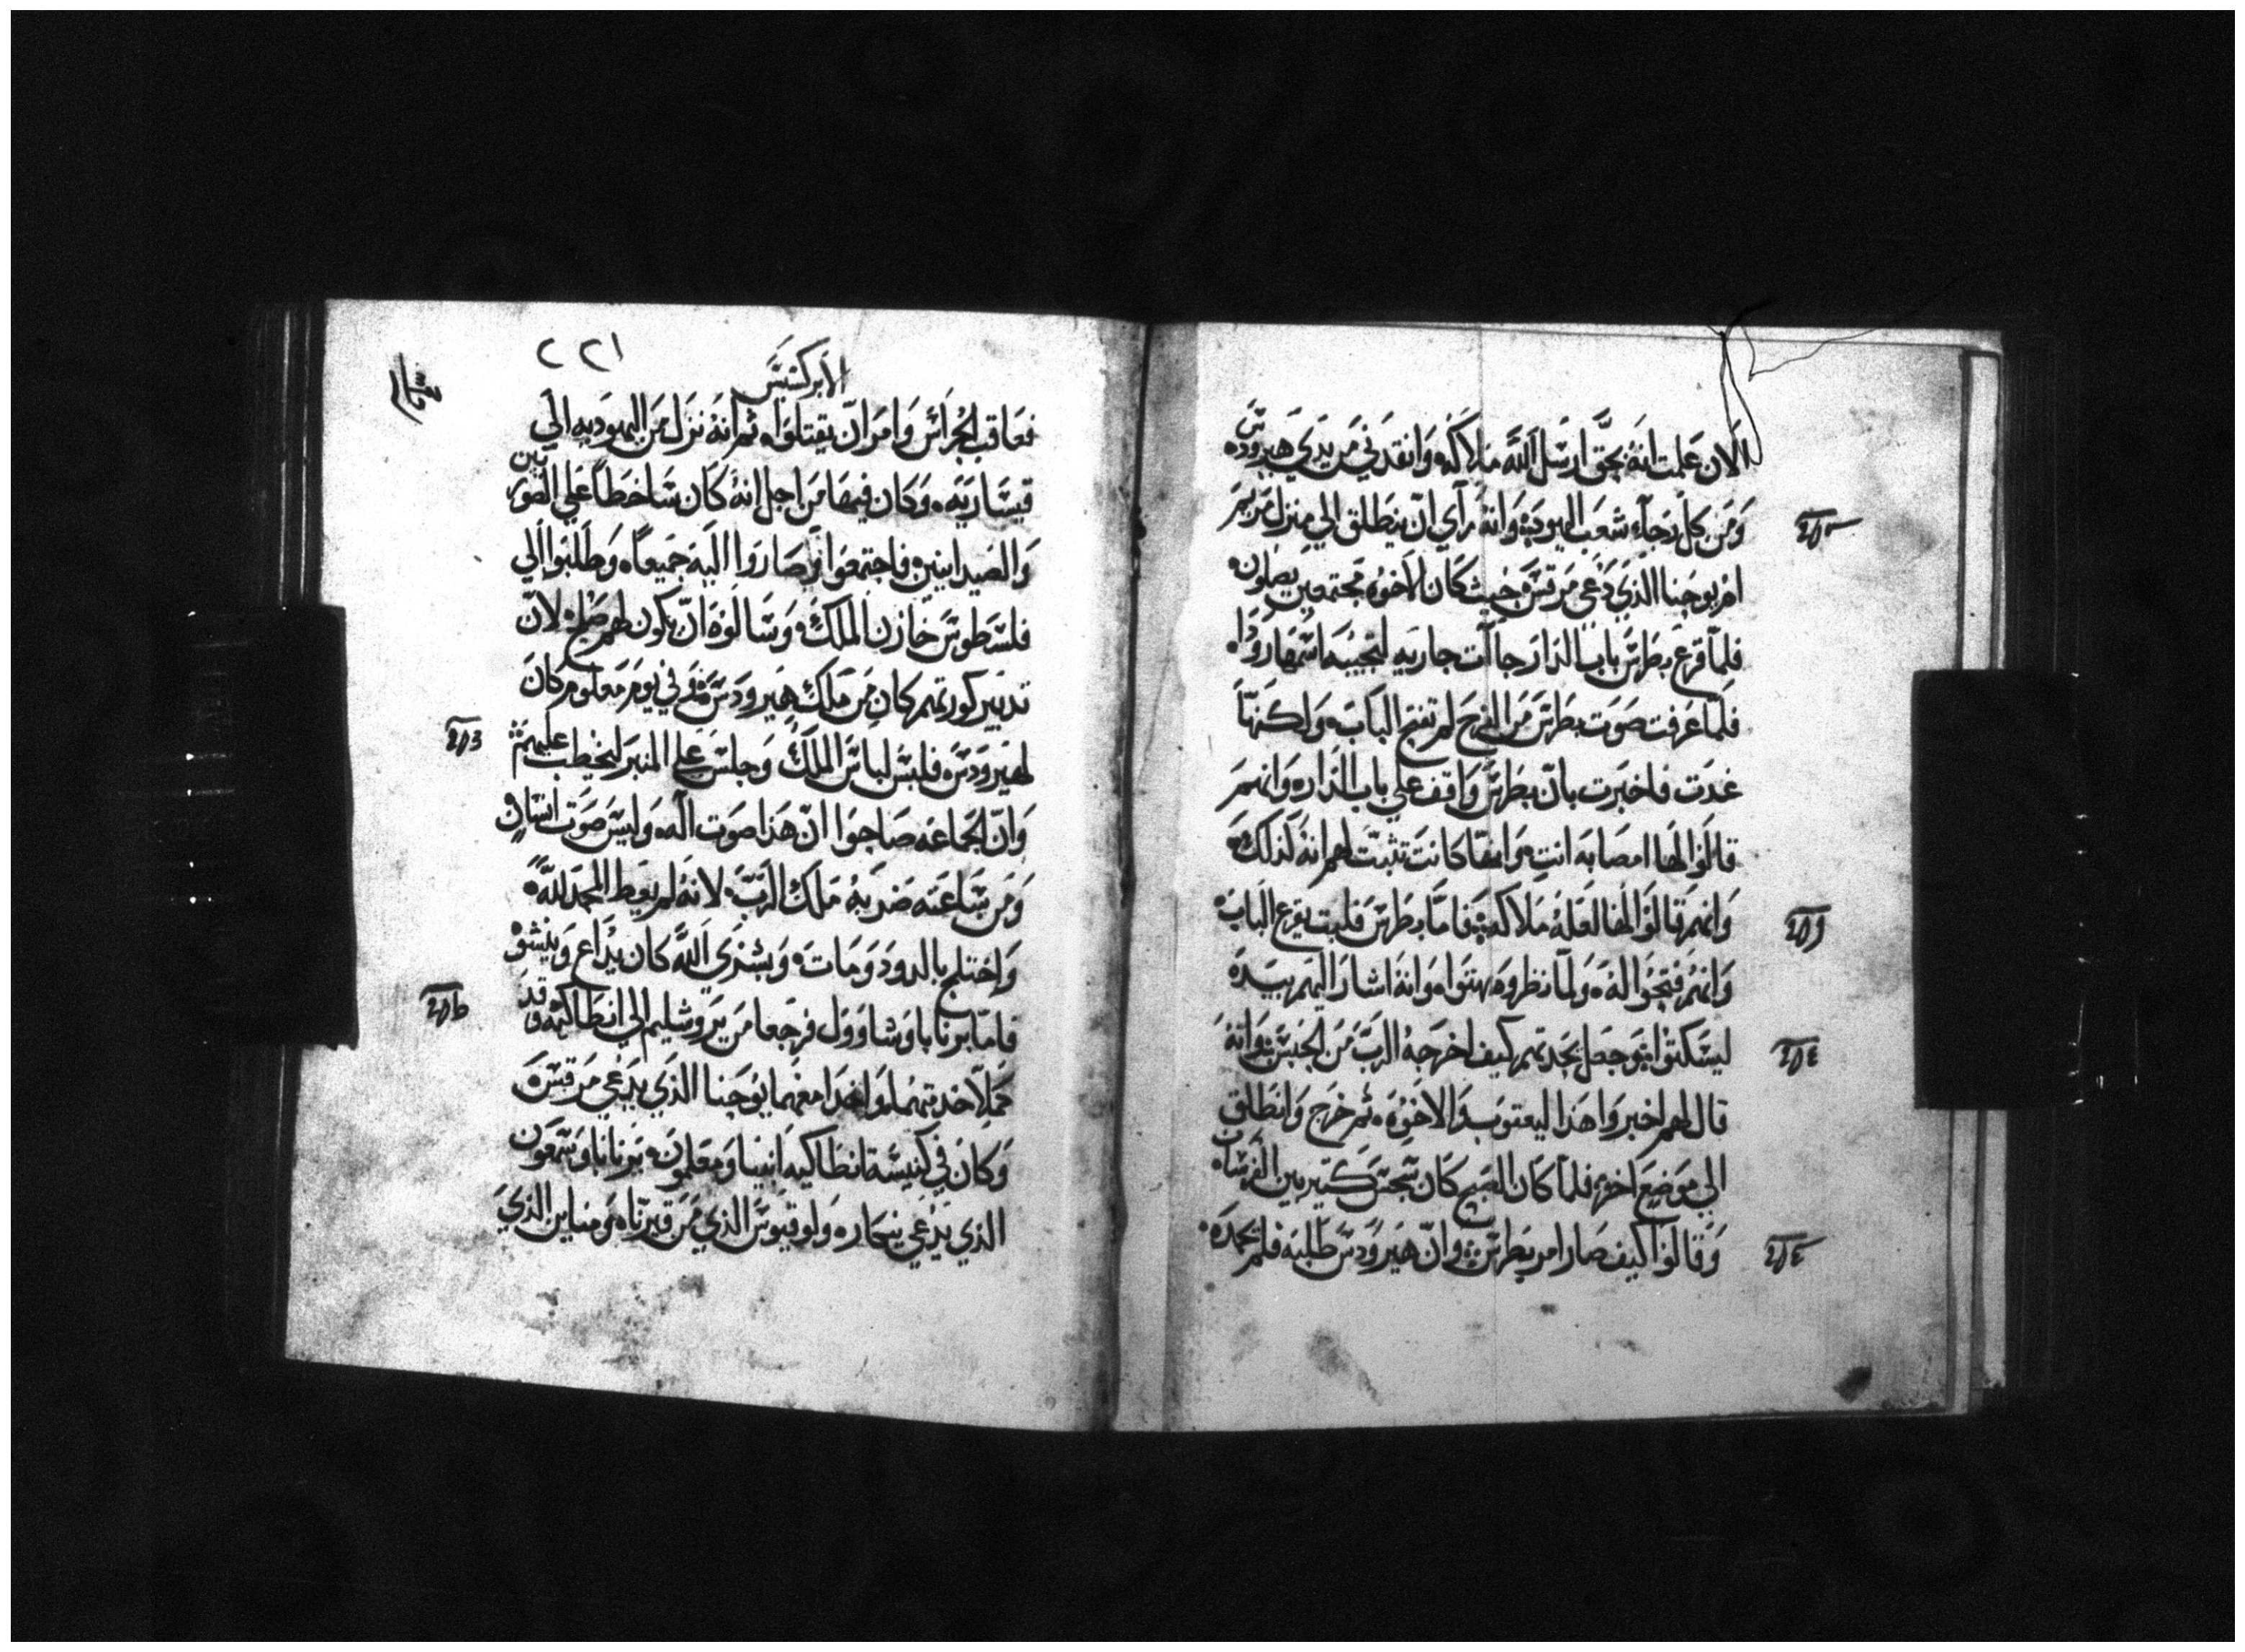 الان علمت انه بحق ارسل الله ملاكه وانقدني من يدي هيرودس
ومن كل رجاء شعب اليهود وانه رآي ان ينطلق الي منزل مريم
ام يوحنا الذي دعي مرقس حيث كان الاخوه مجتمعين يصلون
فلما قرع بطرس باب الدار جاات جاريه لتجيبه اسمها رودا
فلما عرفت صوت بطرس من الفرح لم تفتح الباب ولكنها
غدت فاخبرت بان بطرس واقف علي باب الدار وانهم
قالوا لها امصابه انت وانها كانت تثبت لهم انه كذلك
وانهم قالوا لها لعله ملاكه فاما بطرس فلبت يقرع الباب
وانهم فتحوا له ولما نظروه بهتوا وانه اشار اليهم بيده
ليسكتوا وجعل يحدتهم كيف اخرجه الرب من الحبس وانه
قال لهم اخبروا هذا ليعقوب والاخوه ثم خرج وانطلق
الي موضع اخر فلما كان الصبح كان سجس كتير بين الفرسان
وقالوا كيف صار امر بطرس وان هيرودس طلبه فلم يجده
٢٢١
الابركسيس
فعاقب الحراس وامر ان يقتلوا ثم انه نزل من اليهوديه الي
قيساريه وكان فيها من اجل انه كان ساخطا علي الصوريين
والصيدانيين فاجتمعوا وصاروا اليه جميعا وطلبوا الي
فلسطوس خازن الملك وسالوه ان يكون لهم صلح لان
تدبير كورتهم كان من ملك هيرودس وفي يوم معلوم كان
لهيرودس فلبس لباس الملك وجلس علي المنبر ليخطب عليهم
وان الجماعه صاحوا ان هذا صوت اله وليس صوت انسان
ومن ساعته ضربه ملاك الرب لانه لم يعط المجد لله
واختلج بالدود ومات وبشري الله كان يداع وينشو
فاما برنابا وشاوول فرجعا من يروشليم الي انطاكيه وقد
كملا خدمتهما واخدا معهما يوحنا الذي يدعي مرقس
وكان في كنيسة انطاكيه انبيا ومعلمون برنابا وسمعون
الذي يدعي ينجار ولوقيوس الذي من قيرنا ومناين الذي